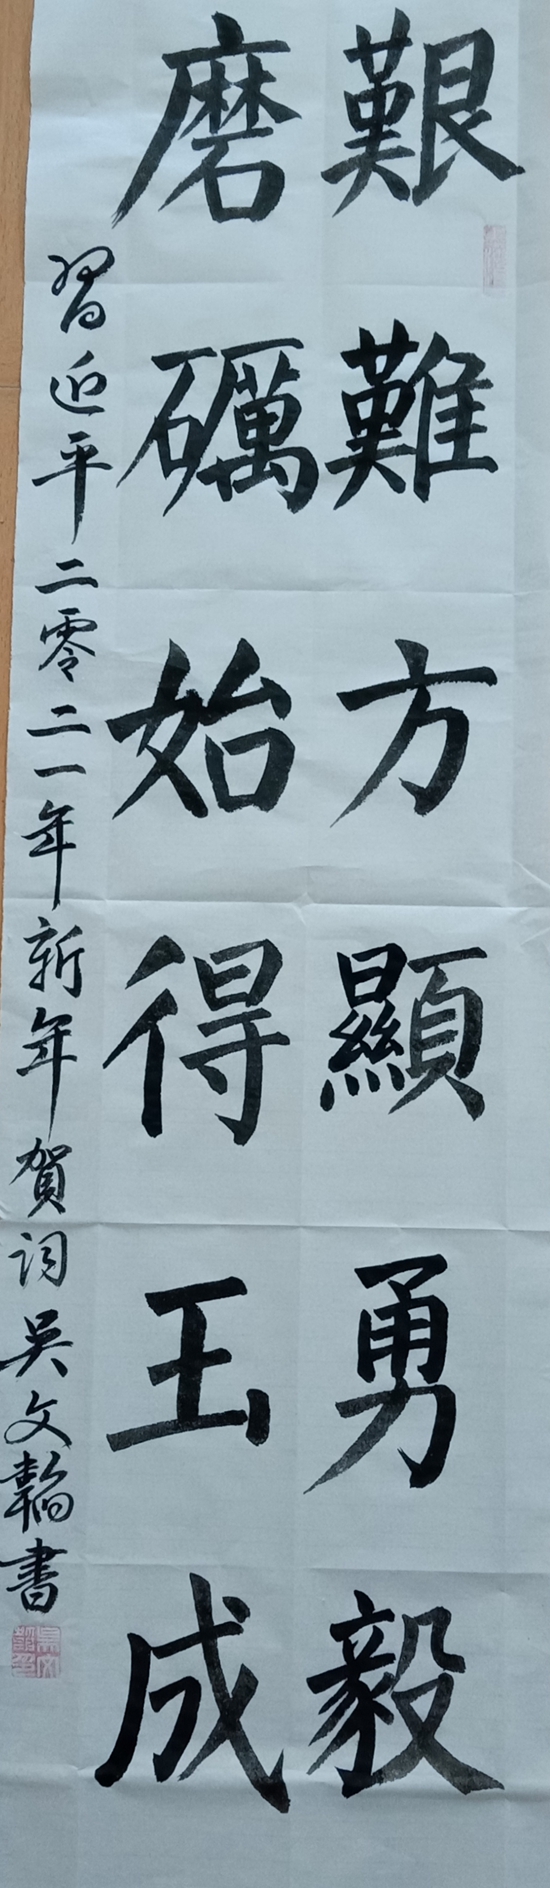 艱難方顯勇毅
磨礪始得玉成
習近平二零二一年新年賀词吳文翰書